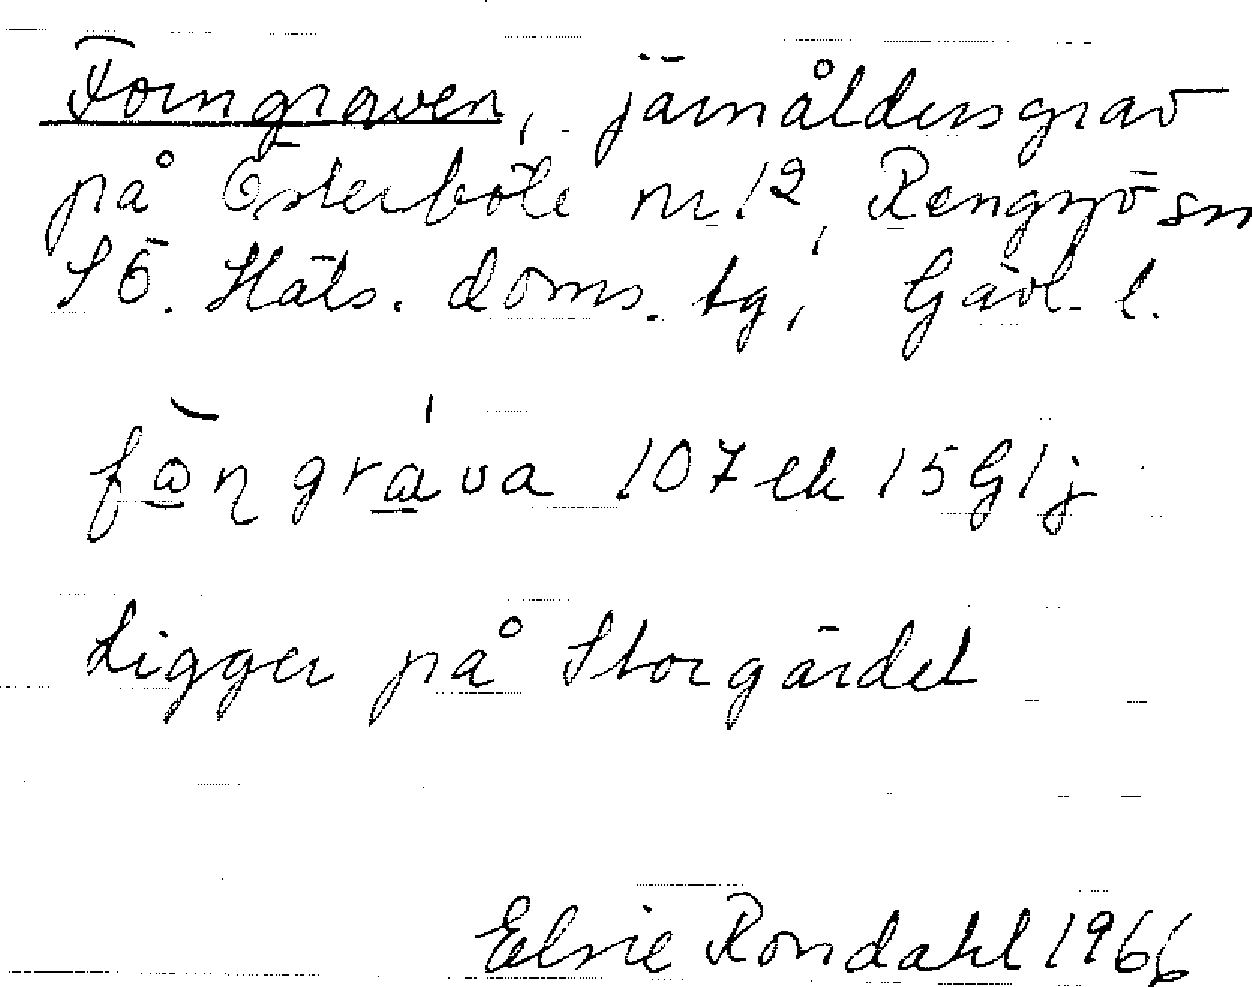 Forngraven, järnåldersgrav
på Österböle nr 12, Rengsjö sn
SÖ. Häls. doms. tg, Gävl. l.
fà̱ŋ grá̱va 107 ek 15G1j
Ligger på Storgärdet
Elsie Rondahl 1966